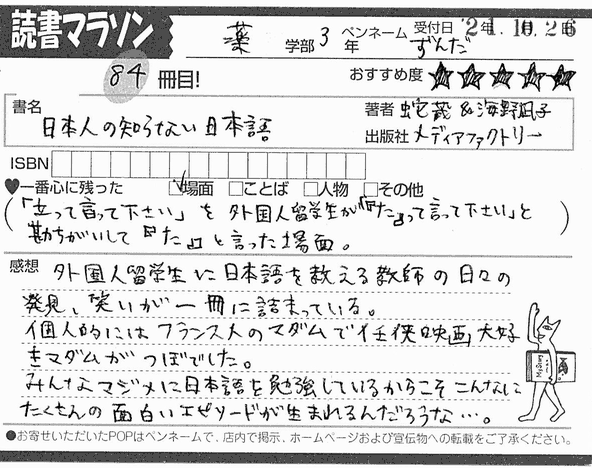 読書マラソン
薬 学部 3年 ペンネーム ずんだ 受付日
84 冊目!
おすすめ度 ★★★★★
書名 日本人の知らない日本語
著者 蛇蔵&海野凪子
出版社 メディアファクトリー
ISBN
♥一番心に残った ☑場面 □ことば □人物 □その他
(「立って言って下さい」を外国人留学生が「『た』って言って下さい」と
勘ちがいして『た』と言った場面。)
感想 外国人留学生に日本語を教える教師の日々の
発見、笑いが一冊に詰まっている。
個人的にはフランス人のマダムで任侠映画大好
きマダムがつぼでした。
みんなマジメに日本語を勉強しているからこそこんなに
たくさんの面白いエピソードが生まれるんだろうな…。
●お寄せいただいたPOPはペンネームで、店内で掲示、ホームページおよび宣伝物への転載をご了承ください。